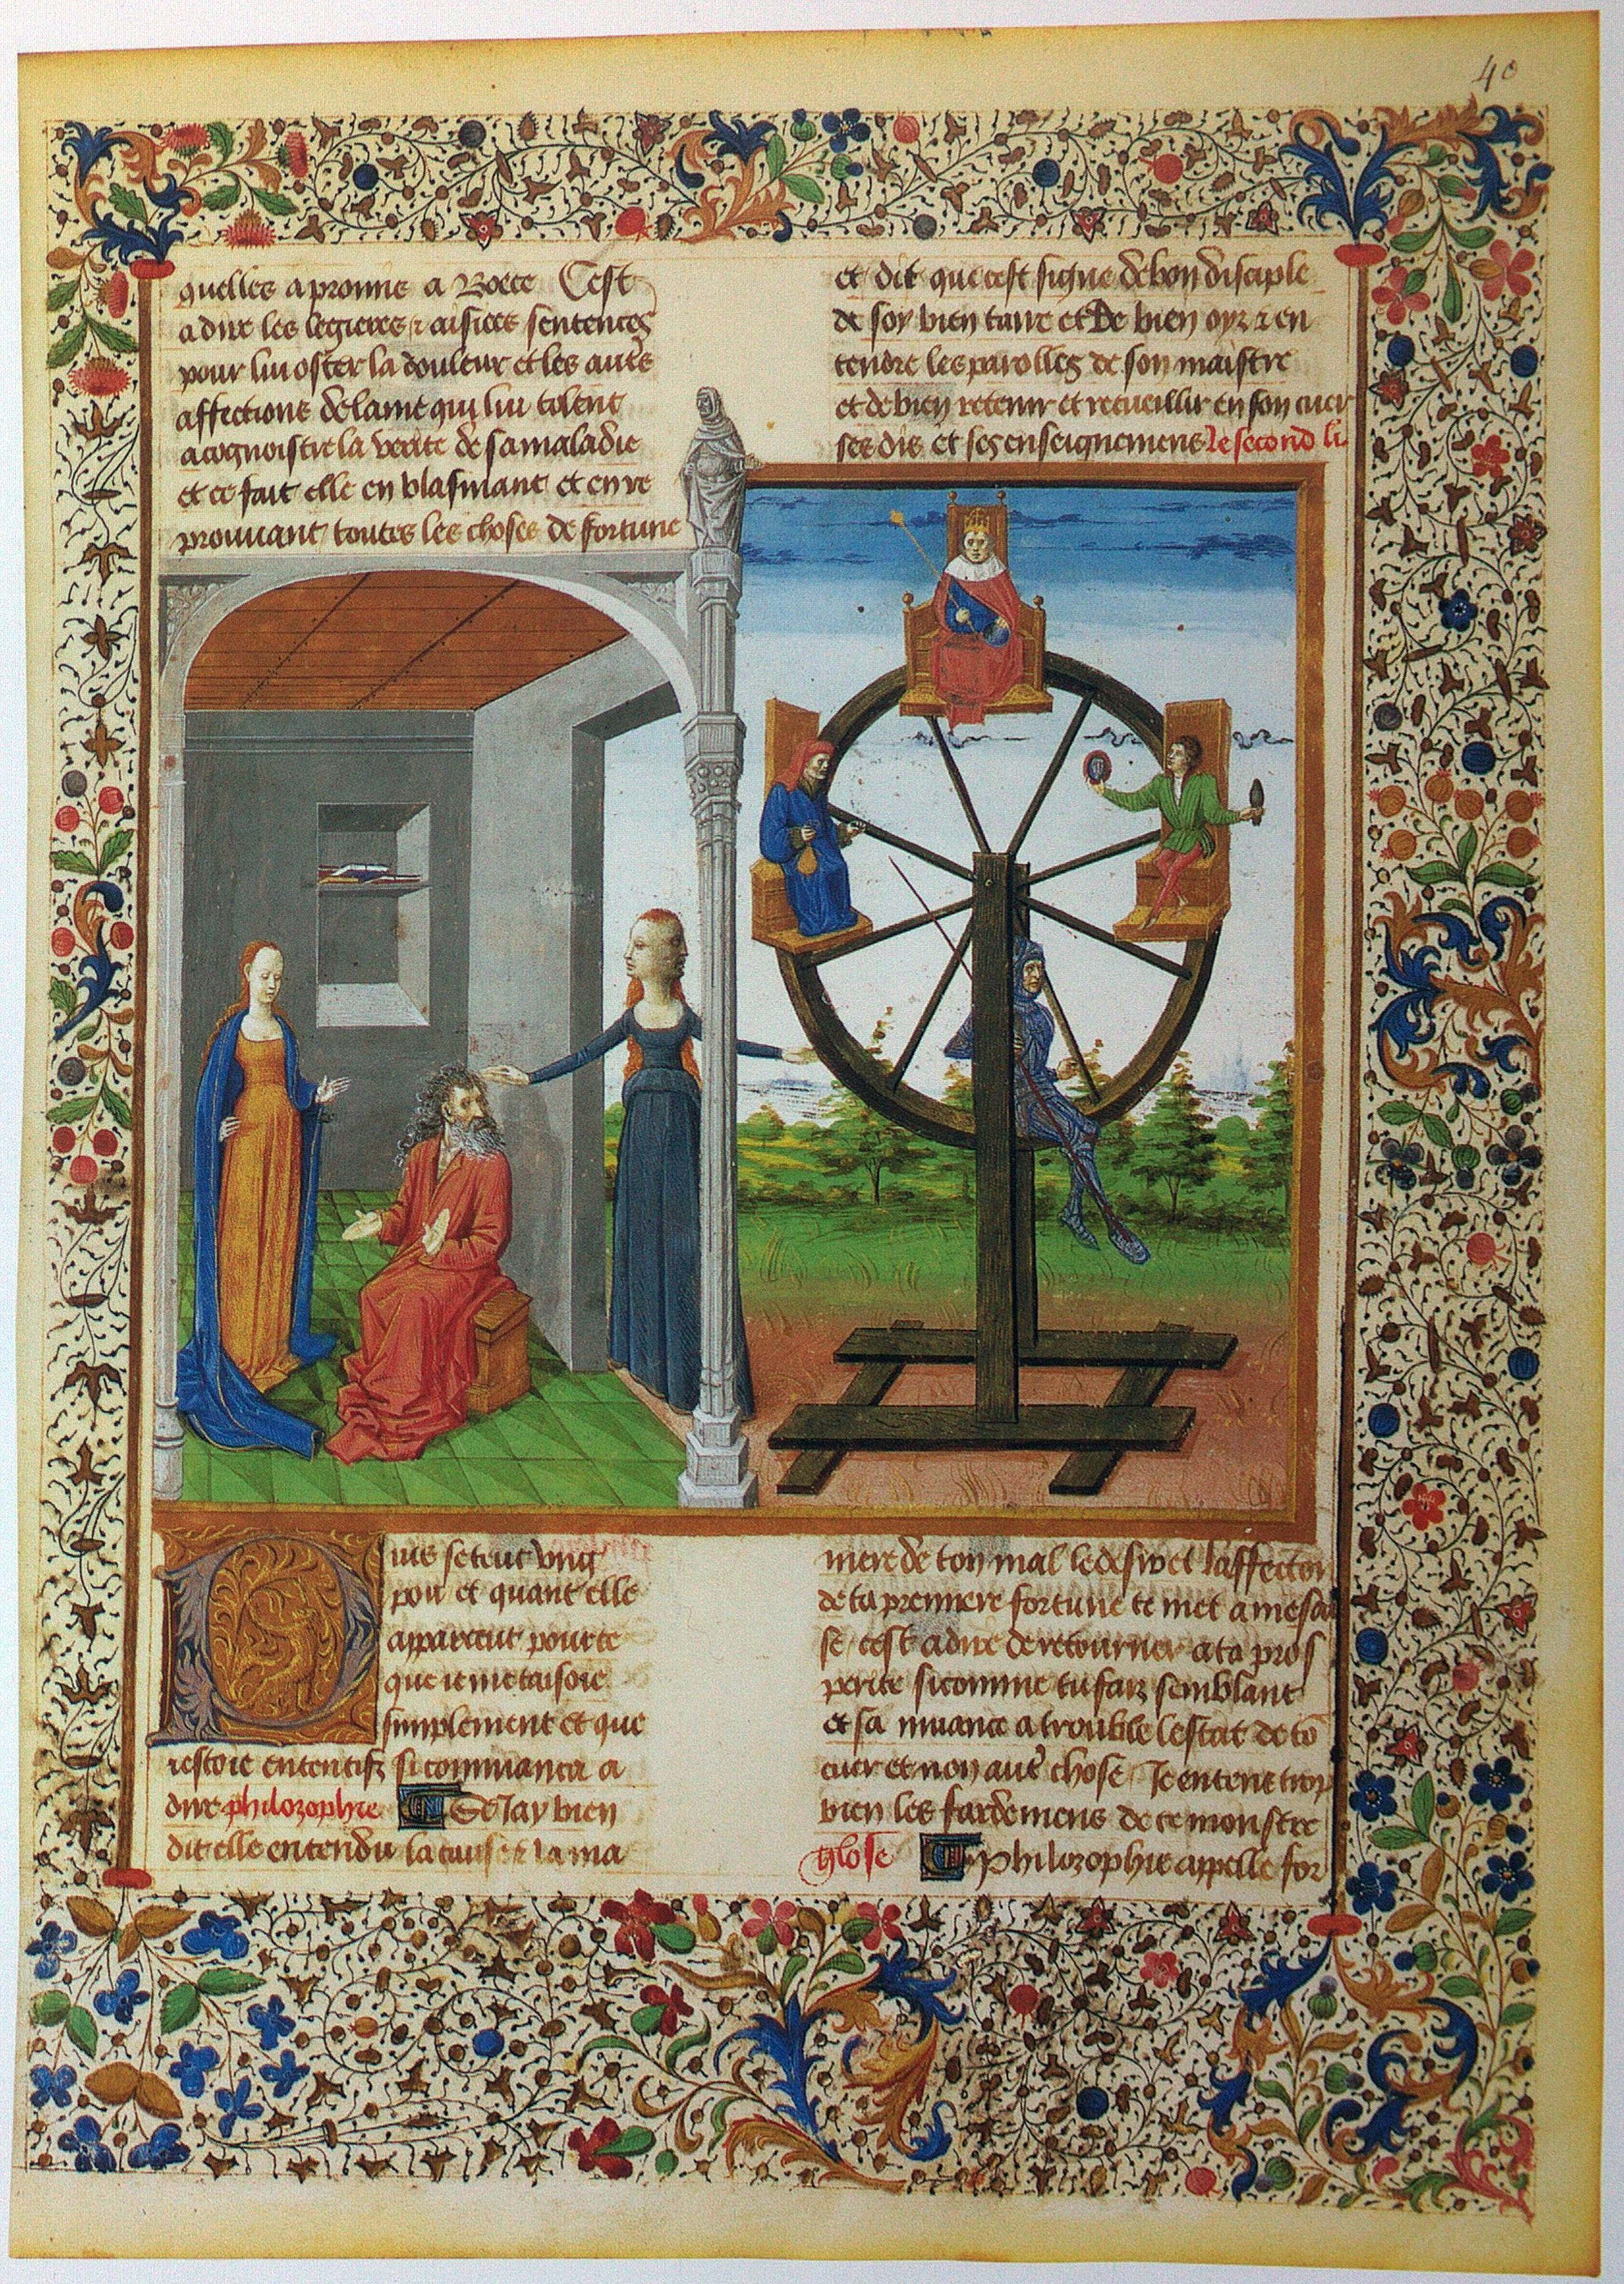 40
quelles a promis a Boece Cest
a dire les legieres & aisiees sentences
pour lui oster la douleur et les autres
affections de lame qui lui tolent
a cognoistre la verite de sa maladie
et ce fait elle en blasmant et en re
prouuant toutes les choses de fortune
et dit que cest signe de bon disciple
de soy bien taire et de bien oyr & en
tendre les parolles de son maistre
et de bien retenir et recueillir en son cuer
ses dis et ses enseignemens le second li
Uis se teut vng
pou et quant elle
apparceut pour ce
que ie me taisoie
simplement et que
iestoie ententif si commanca a
dire philozophie Se Jay bien
dit elle entendu la cause & la ma
niere de ton mal le desir et laffection
de ta premiere fortune te met a mesai
se cest a dire de retourner a ta pros
perite si comme tu fais semblant
et sa muance a trouble lestat de to
cuer et non autre chose Je entens trop
bien les fardemens de ce monstre
glose Philozophie appelle for